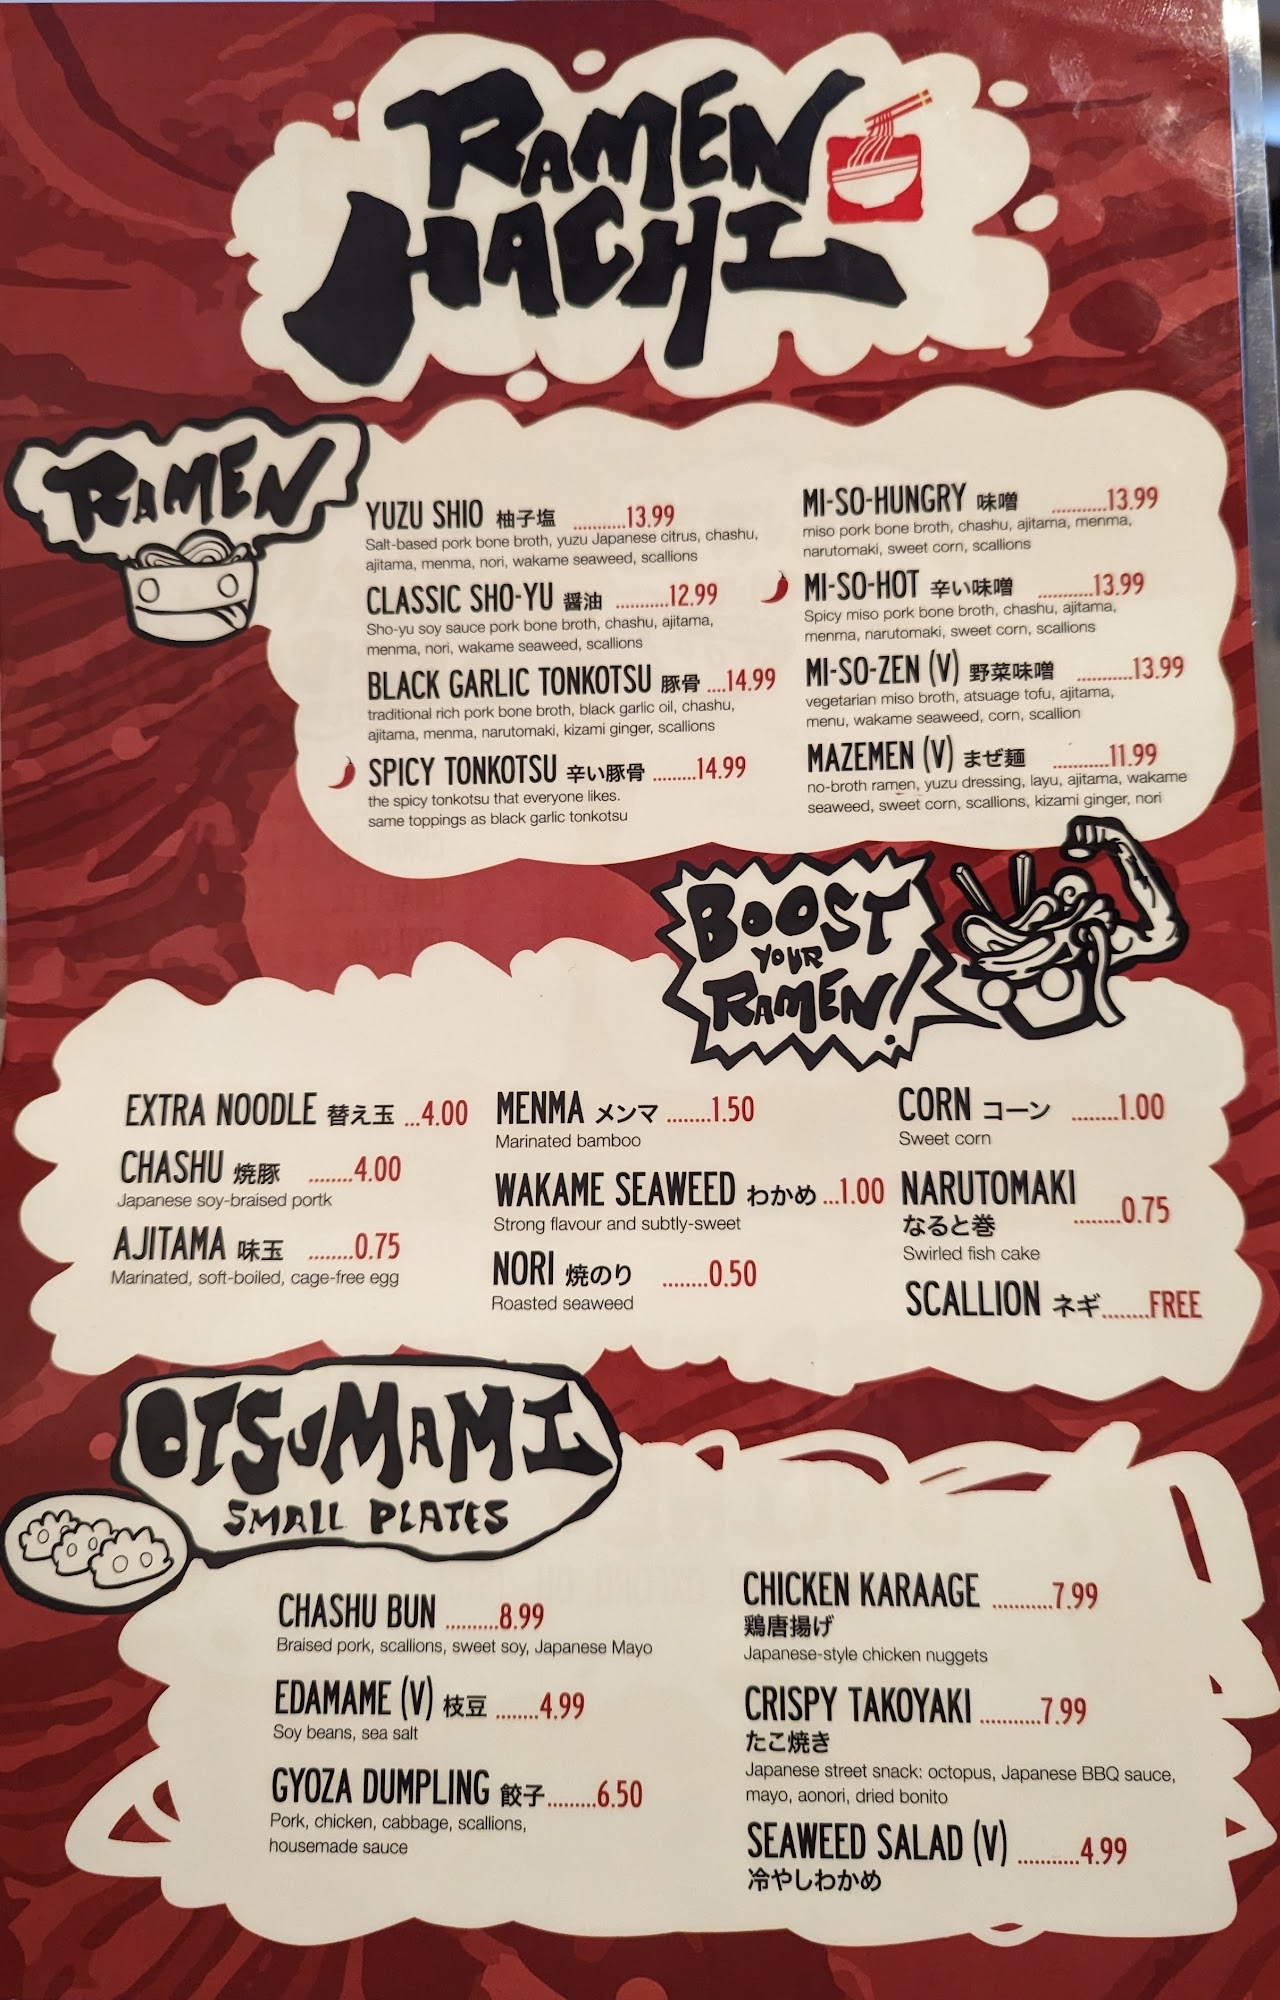 RAMEN
HACHI
RAMEN
YUZU SHIO 柚子塩 ...........13.99
Salt-based pork bone broth, yuzu Japanese citrus, chashu,
ajitama, menma, nori, wakame seaweed, scallions
CLASSIC SHO-YU 醤油 ...........12.99
Sho-yu soy sauce pork bone broth, chashu, ajitama,
menma, nori, wakame seaweed, scallions
BLACK GARLIC TONKOTSU 豚骨 ....14.99
traditional rich pork bone broth, black garlic oil, chashu,
ajitama, menma, narutomaki, kizami ginger, scallions
SPICY TONKOTSU 辛い豚骨 .........14.99
the spicy tonkotsu that everyone likes.
same toppings as black garlic tonkotsu
MI-SO-HUNGRY 味噌 ...........13.99
miso pork bone broth, chashu, ajitama, menma,
narutomaki, sweet corn, scallions
MI-SO-HOT 辛い味噌 ...........13.99
Spicy miso pork bone broth, chashu, ajitama,
menma, narutomaki, sweet corn, scallions
MI-SO-ZEN (V) 野菜味噌 ...........13.99
vegetarian miso broth, atsuage tofu, ajitama,
menu, wakame seaweed, corn, scallion
MAZEMEN (V) まぜ麺 ...........11.99
no-broth ramen, yuzu dressing, layu, ajitama, wakame
seaweed, sweet corn, scallions, kizami ginger, nori
BOOST
YOUR
RAMEN!
EXTRA NOODLE 替え玉 ...4.00
CHASHU 焼豚 ........4.00
Japanese soy-braised portk
AJITAMA 味玉 ........0.75
Marinated, soft-boiled, cage-free egg
MENMA メンマ ........1.50
Marinated bamboo
WAKAME SEAWEED わかめ ...1.00
Strong flavour and subtly-sweet
NORI 焼のり ........0.50
Roasted seaweed
CORN コーン ........1.00
Sweet corn
NARUTOMAKI
なると巻 ........0.75
Swirled fish cake
SCALLION ネギ........FREE
OTSUMAMI
SMALL PLATES
CHASHU BUN ..........8.99
Braised pork, scallions, sweet soy, Japanese Mayo
EDAMAME (V) 枝豆 ........4.99
Soy beans, sea salt
GYOZA DUMPLING 餃子.........6.50
Pork, chicken, cabbage, scallions,
housemade sauce
CHICKEN KARAAGE ...........7.99
鶏唐揚げ
Japanese-style chicken nuggets
CRISPY TAKOYAKI ...........7.99
たこ焼き
Japanese street snack: octopus, Japanese BBQ sauce,
mayo, aonori, dried bonito
SEAWEED SALAD (V) ...........4.99
冷やしわかめ